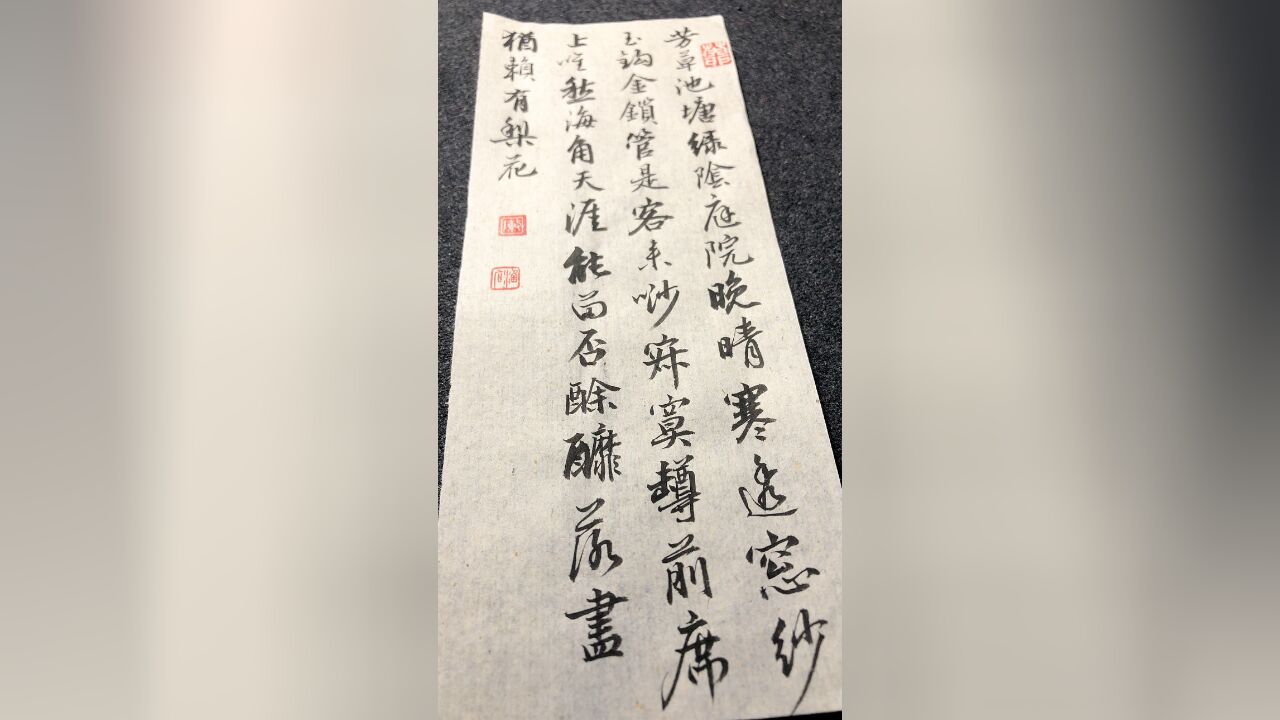 芳草池塘綠陰庭院晚晴寒透窓紗
玉鈎金鎖管是客來唦寂寞罇前席
上惟愁海角天涯能畱否酴醿落盡
猶賴有梨花